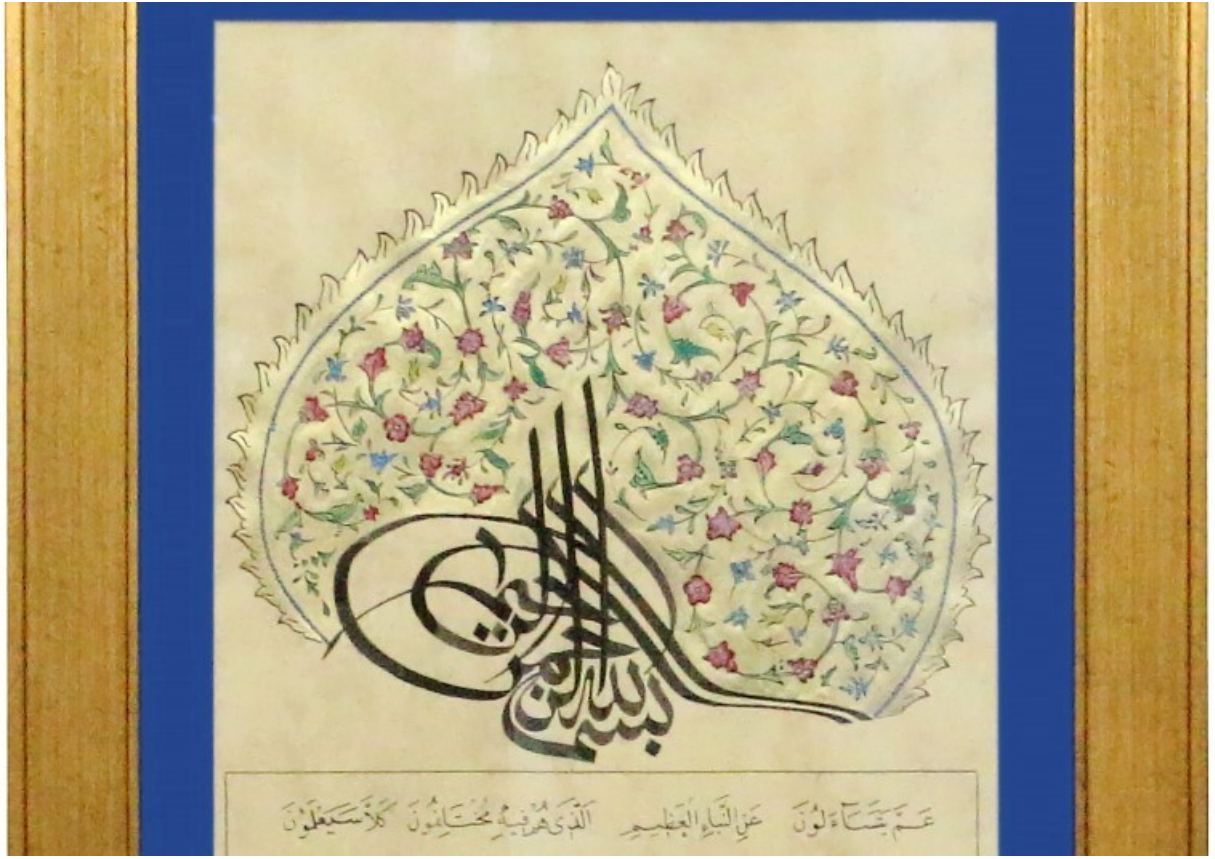 بسم الله الرحمن الرحيم
عَمَّ يَتَسَاءَلُونَ عَنِ النَّبَاءِ الْعَظِيمِ اَلَّذِى هُمْ فِيهِ مُخْتَلِفُونَ كَلَّا سَيَعْلَمُونَ